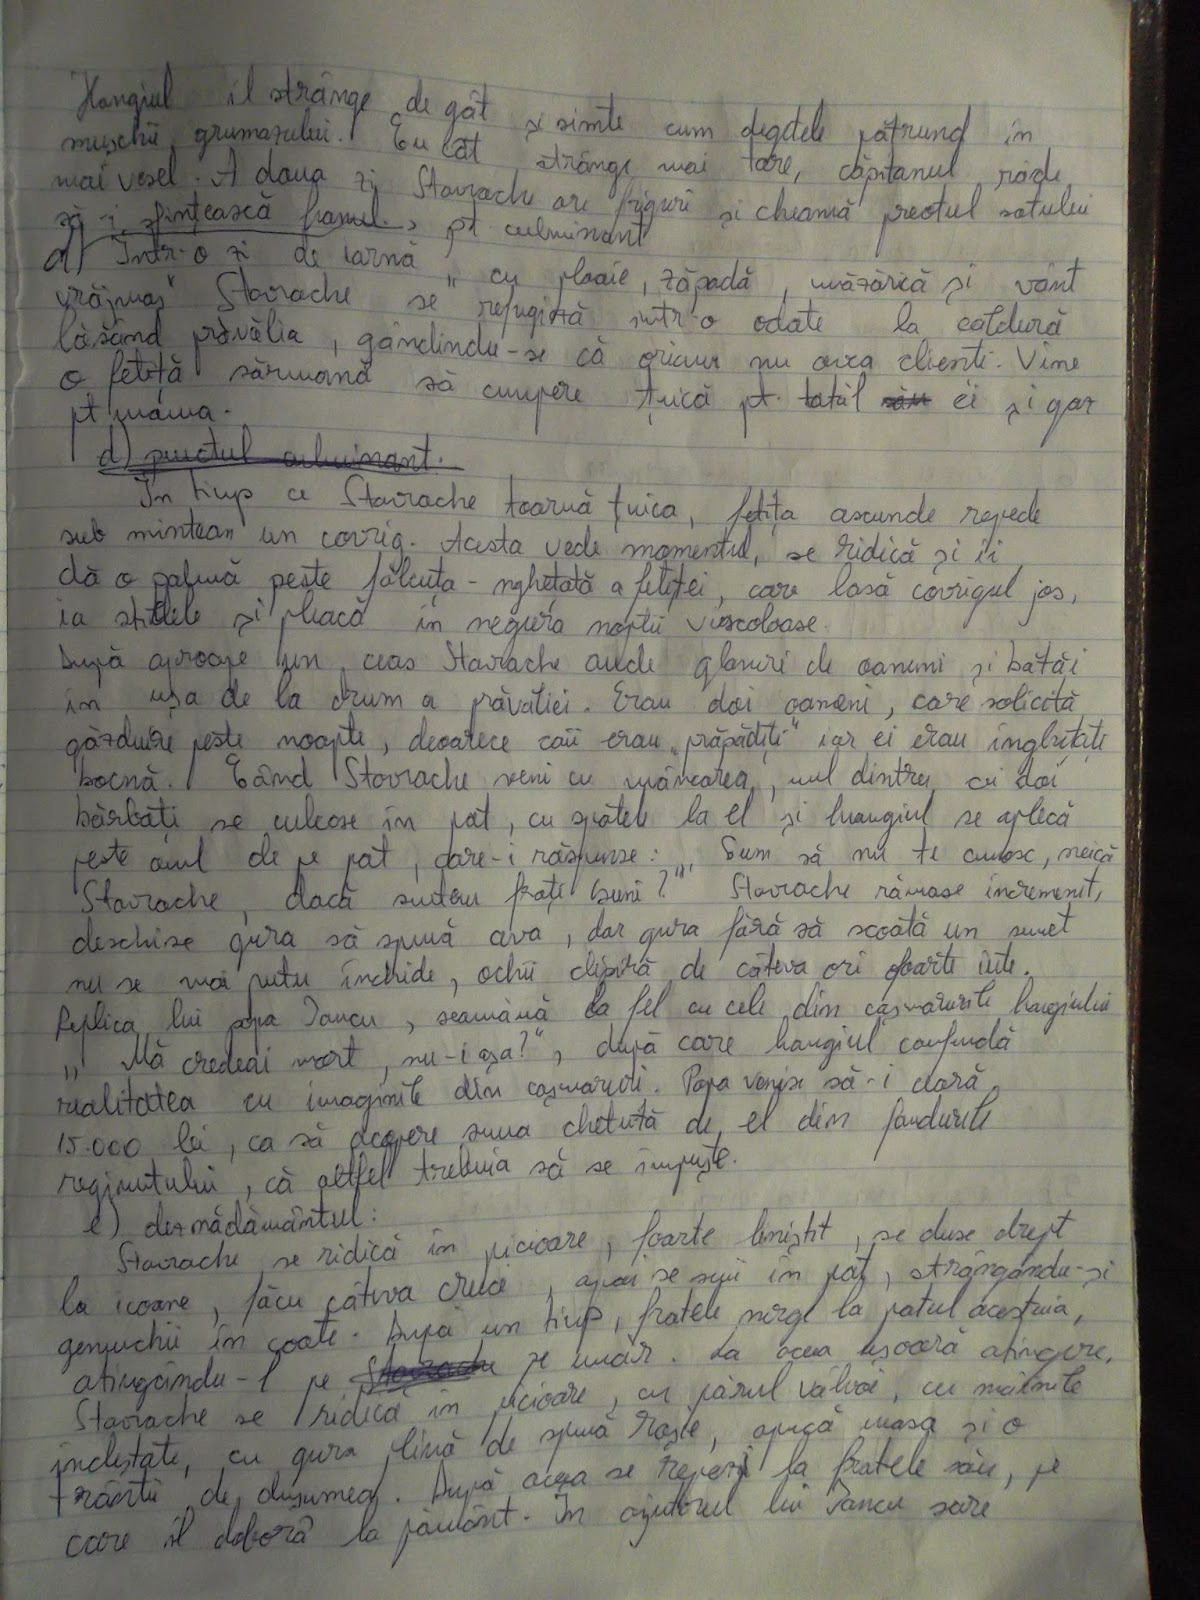 Hangiul îl strânge de gât și simte cum degetele pătrund în
mușchii grumazului. Cu cât strânge mai tare, căpitanul râde
mai vesel. A doua zi Stavrache are friguri și cheamă preotul satului
să-i sfințească hanul. pt culminant
d) Într-o zi de iarnă „cu ploaie, zăpadă, măzărică și vânt
vrăjmaș" Stavrache se refugiază într-o odaie la căldură
lăsând prăvălia, gândindu-se că oricum nu avea clienti. Vine
o fetiță sărmană să cumpere țuică pt. tatăl său ei și gaz
pt mama.
d) punctul culminant.
În timp ce Stavrache toarnă țuica, fetița ascunde repede
sub mintean un covrig. Acesta vede momentul, se ridică și îi
dă o palmă peste fălcuța-nghețată a fetiței, care lasă covrigul jos,
ia sticlele și pleacă în negura nopții viscoloase.
După aproape un ceas Stavrache aude glasuri de oameni și bătăi
în ușa de la drum a prăvăliei. Erau doi oameni, care solicită
găzduire peste noapte, deoarece caii erau „prăpădiți" iar ei erau înghețați
bocnă. Când Stavrache veni cu mâncarea, unul dintre cei doi
bărbați se culcase în pat, cu spatele la el și hangiul se aplecă
peste omul de pe pat, care-i răspunse: „Cum să nu te cunosc, neică
Stavrache, dacă suntem frați buni?" Stavrache rămase încremenit,
deschise gura să spună ceva, dar gura fără să scoată un sunet
nu se mai putu închide, ochii clipiră de câteva ori foarte iute.
Replica lui popa Iancu, seamănă la fel cu cele din coșmarurile hangiului
„Mă credeai mort, nu-i așa?", după care hangiul confundă
realitatea cu imaginile din coșmaruri. Popa venise să-i ceară
15.000 lei, ca să acopere suma cheltuită de el din fondurile
regimentului, că altfel trebuia să se împuște.
e) deznodământul:
Stavrache se ridică în picioare, foarte liniștit, se duse drept
la icoane, făcu câteva cruci, apoi se sui în pat, strângându-și
genunchii în coate. După un timp, fratele merge la patul acestuia,
atingându-l pe Stavrache pe umăr. La acea ușoară atingere,
Stavrache se ridică în picioare, cu părul vâlvoi, cu mâinile
încleștate, cu gura plină de spumă roșie, apucă masa și o
trânti de dușumea. După aceea se repezi la fratele său, pe
care îl doborî la pământ. În ajutorul lui Iancu sare